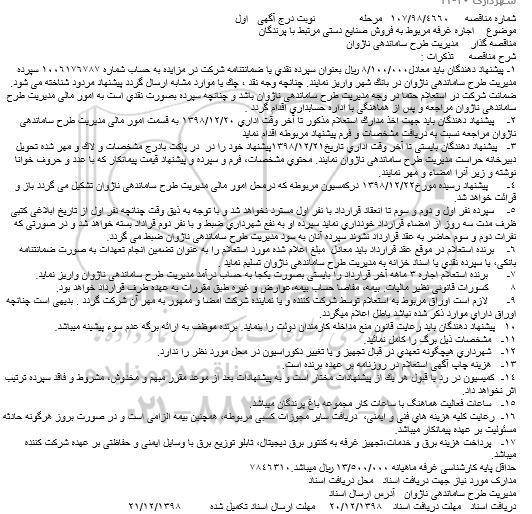 شماره مناقصه ۱۰۷/۹۸/۴۶۶۰ مرحله نوبت درج آگهی اول
موضوع اجاره غرفه مربوط به فروش صنایع دستی مرتبط با پرندگان
مناقصه گذار مدیریت طرح ساماندهی ناژوان
شرح مناقصه تذکرات :
۱ـ پیشنهاد دهندگان باید معادل ۸/۱۰۰/۰۰۰ ریال بعنوان سپرده نقدی یا ضمانتنامه شرکت در مزایده به حساب شماره ۱۰۰۶۱۷۶۷۸۷ سپرده
مدیریت طرح ساماندهی ناژوان در بانک شهر واریز نمایند. چنانچه وجه نقد ، چک یا موارد مشابه ارسال گردد پیشنهاد مردود شناخته می شود.
ضمانت شرکت در استعلام حتما در وجه مدیریت طرح ساماندهی ناژوان باشد و چنانچه سپرده بصورت نقدی است به امور مالی مدیریت طرح
ساماندهی ناژوان مراجعه و پس از هماهنگی با اداره حسابداری اقدام گردد .
۲- پیشنهاد دهندگان باید جهت اخذ مدارک استعلام مذکور تا آخر وقت اداری ۱۳۹۸/۱۲/۲۰ به قسمت امور مالی مدیریت طرح ساماندهی
ناژوان مراجعه نسبت به دریافت مشخصات و فرم پیشنهاد مربوطه اقدام نماید
۳- پیشنهاد دهندگان بایستی تا آخر وقت اداری تاریخ ۱۳۹۸/۱۲/۲۱ پیشنهاد خود را در پاکت بادرج مشخصات و لاک و مهر شده تحویل
دبیرخانه حراست مدیریت طرح ساماندهی ناژوان نمایند. محتوی مشخصات، فرم و سپرده و پیشنهاد قیمت پیمانکار که با عدد و حروف خوانا
نوشته و زیر آنرا امضاء و مهر نمایند.
۴- پیشنهاد رسیده مورخ ۱۳۹۸/۱۲/۲۲ درکمسیون مربوطه که درمحل امور مالی مدیریت طرح ساماندهی ناژوان تشکیل می گردد باز و
قرائت خواهد شد.
۵- سپرده نفر اول و دوم و سوم تا انعقاد قرارداد با نفر اول مسترد نخواهد شد و با توجه به ذیق وقت چنانچه نفر اول از تاریخ ابلاغی کتبی
ظرف مدت سه روز از امضاء قرارداد خودداری نماید سپرده او به نفع شهرداری ضبط و با نفر دوم قراداد بسته خواهد شد و در صورتی که
نفرات دوم و سوم حاضر به عقد قرارداد نشوند سپرده آنان به سود مدیریت طرح ساماندهی ناژوان ضبط می گردد.
۶- برنده استعلام در موقع عقد قرارداد باید معادل مبلغ اعلام شده مورد استعلام را به عنوان تضمین انجام تعهدات به صورت ضمانتنامه
بانکی، یا سپرده نقدی یا اسناد خزانه به مدیریت طرح ساماندهی ناژوان تسلیم نماید
۷- برنده استعلام اجاره ۳ ماهه آخر قرارداد را بایستی بصورت یکجا به حساب درآمد مدیریت طرح ساماندهی ناژوان واریز نماید.
۸ کسورات قانونی نظیر مالیات، بیمه، مفاصا حساب بیمه،عوارض و غیره طبق مقررات به عهده طرف قرارداد خواهد بود.
۹- لازم است اوراق مربوط به استعلام توسط شرکت کننده و یا نماینده شرکت امضا و ممهور به مهر آن شرکت گردد . بدیهی است چنانچه
اوراق دارای موارد ذکر شده نباشد باطل اعلام میگردد.
۱۰- پیشنهاد دهندگان باید رعایت قانون منع مداخله کارمندان دولت را بنماید. برنده موظف به ارائه برگه عدم سوء پیشینه میباشد.
۱۱- مشخصات ذیل برگ را کامل نمائید.
۱۲- شهرداری هیچگونه تعهدی در قبال تجهیز و یا تغییر دکوراسیون در محل مورد نظر را ندارد.
۱۳- هزینه چاپ آگهی استعلام در روزنامه بر عهده برنده است.
۱۴- کمیسیون در رد یا قبول هر یک از پیشنهادات مختار است و به پیشنهادات بعد از موعد مقرر مبهم و مخدوش، مشروط و فاقد سپرده ترتیب
اثر نخواهد داد.
۱۵- ساعات فعالیت هماهنگ با ساعات کار مجموعه باغ پرندگان میباشد.
۱۶- رعایت کلیه هزینه های فنی و ایمنی، دریافت سایر مجوزات کسبی مربوطه، همچنین بیمه الزامی است و در صورت بروز هرگونه حادثه
مسئولیت بر عهده پیمانکار میباشد.
۱۷- پرداخت هزینه برق و خدمات،تجهیز غرفه به کنتور برق دیجیتال، تابلو توزیع برق با وسایل ایمنی و حفاظتی بر عهده شرکت کننده
میباشد.
حداقل پایه کارشناسی غرفه ماهیانه ۱۳/۵۰۰/۰۰۰ ریال میباشد.۷۸۴۶۳۱۰
مدارک مورد نیاز جهت دریافت اسناد محل دریافت اسناد
مدیریت طرح ساماندهی ناژوان آدرس ارسال اسناد
دریافت اسناد مهلت دریافت اسناد ۲۰/۱۲/۱۳۹۸ مهلت ارسال اسناد تکمیل شده ۲۱/۱۲/۱۳۹۸